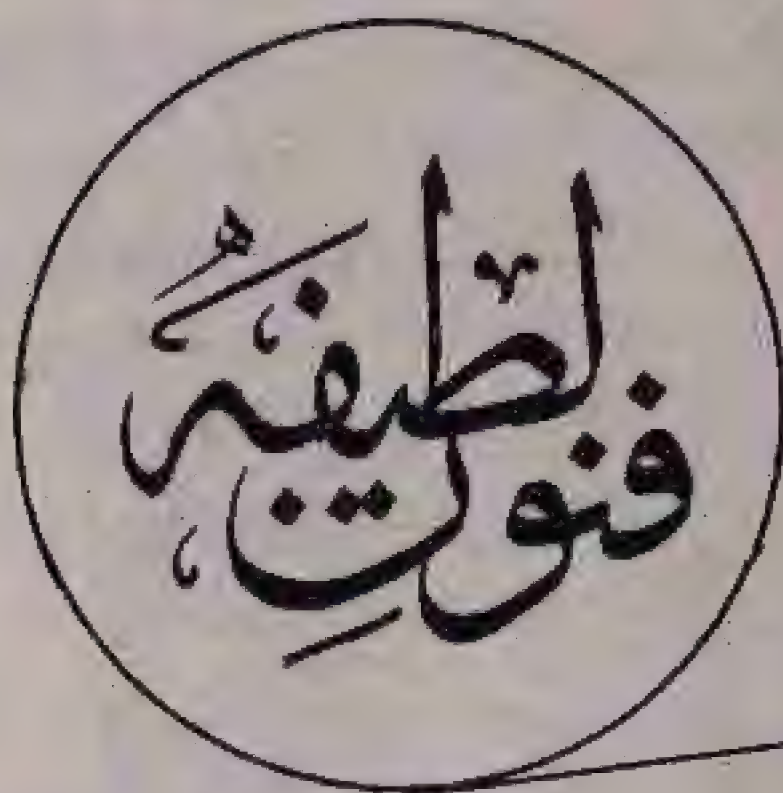 فنونِ لطیفہ